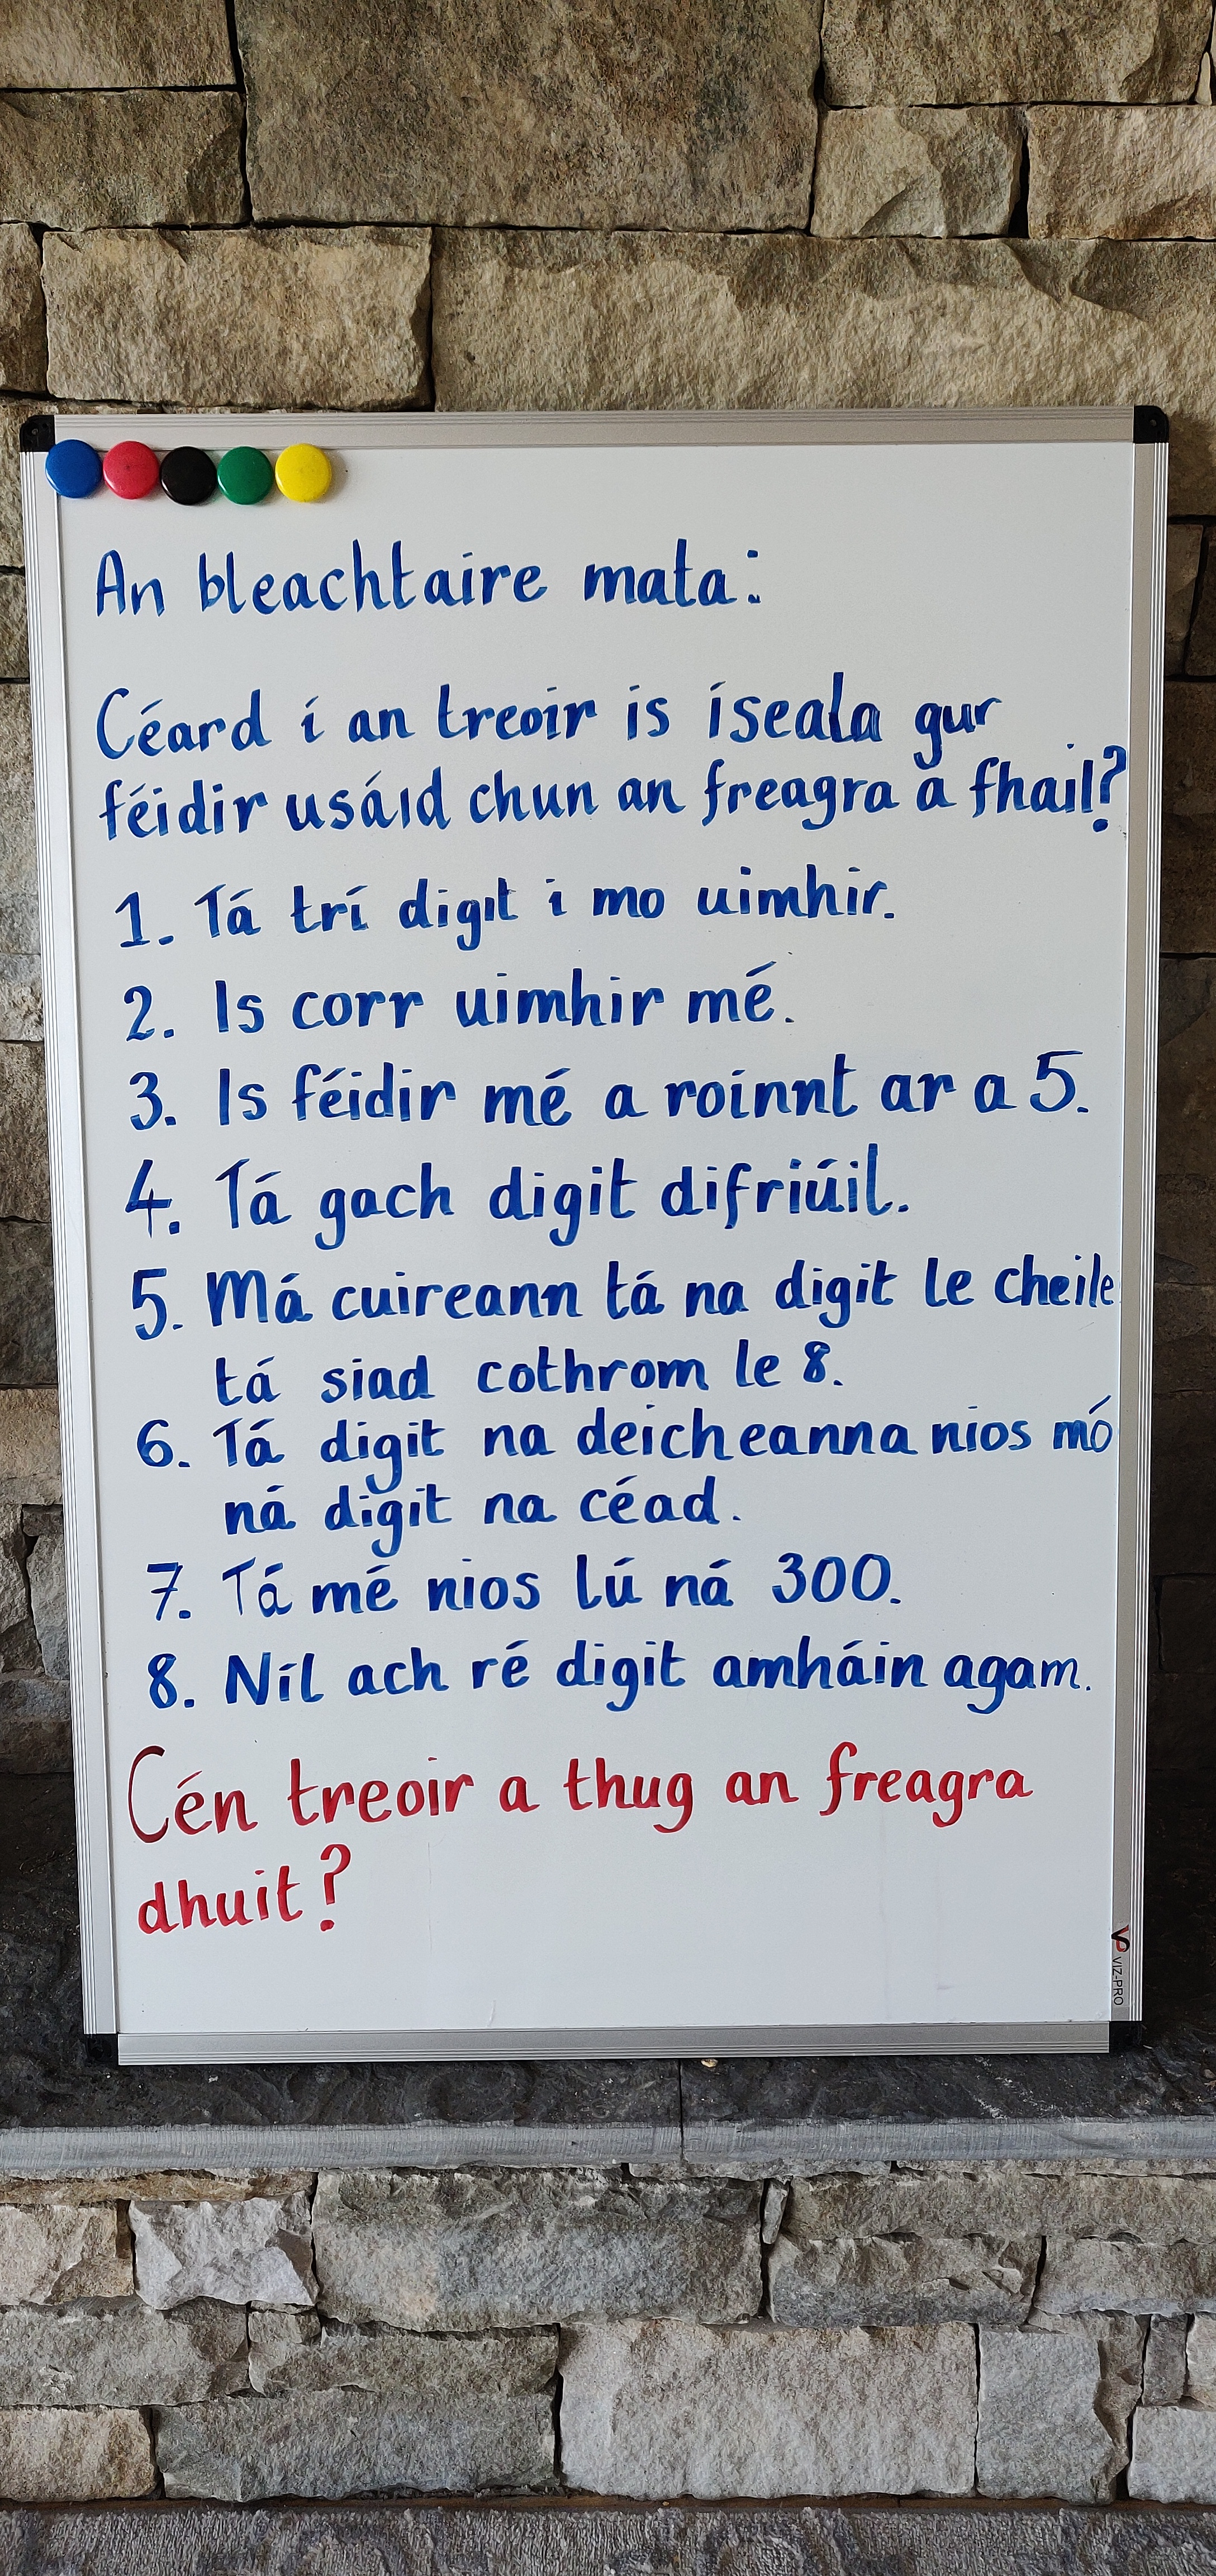 An bleachtaire mata:
Céard í an treoir is íseala gur
féidir usáid chun an freagra a fhail?
1. Tá trí digit i mo uimhir.
2. Is corr uimhir mé.
3. Is féidir mé a roinnt ar a 5.
4. Tá gach digit difriúil.
5. Má cuireann tá na digit le cheile
tá siad cothrom le 8.
6. Tá digit na deicheanna nios mó
ná digit na céad.
7. Tá mé nios lú ná 300.
8. Níl ach ré digit amháin agam.
Cén treoir a thug an freagra
dhuit?
VIZ-PRO